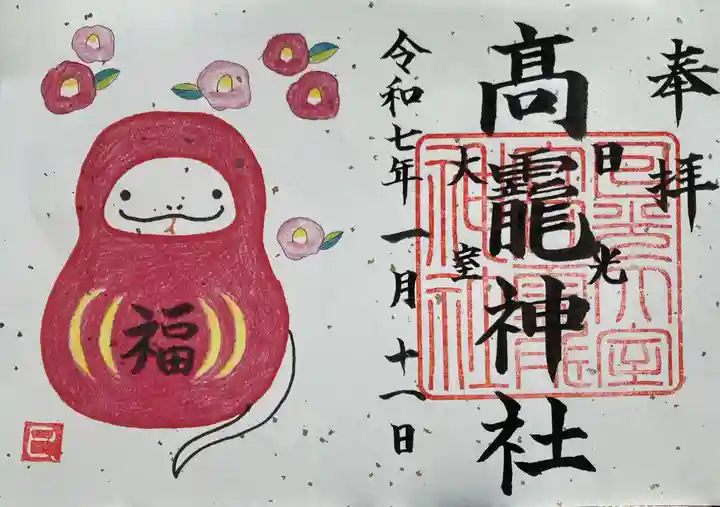 奉拝
日光
髙龗神社
大室
令和七年一月十一日
福
巳